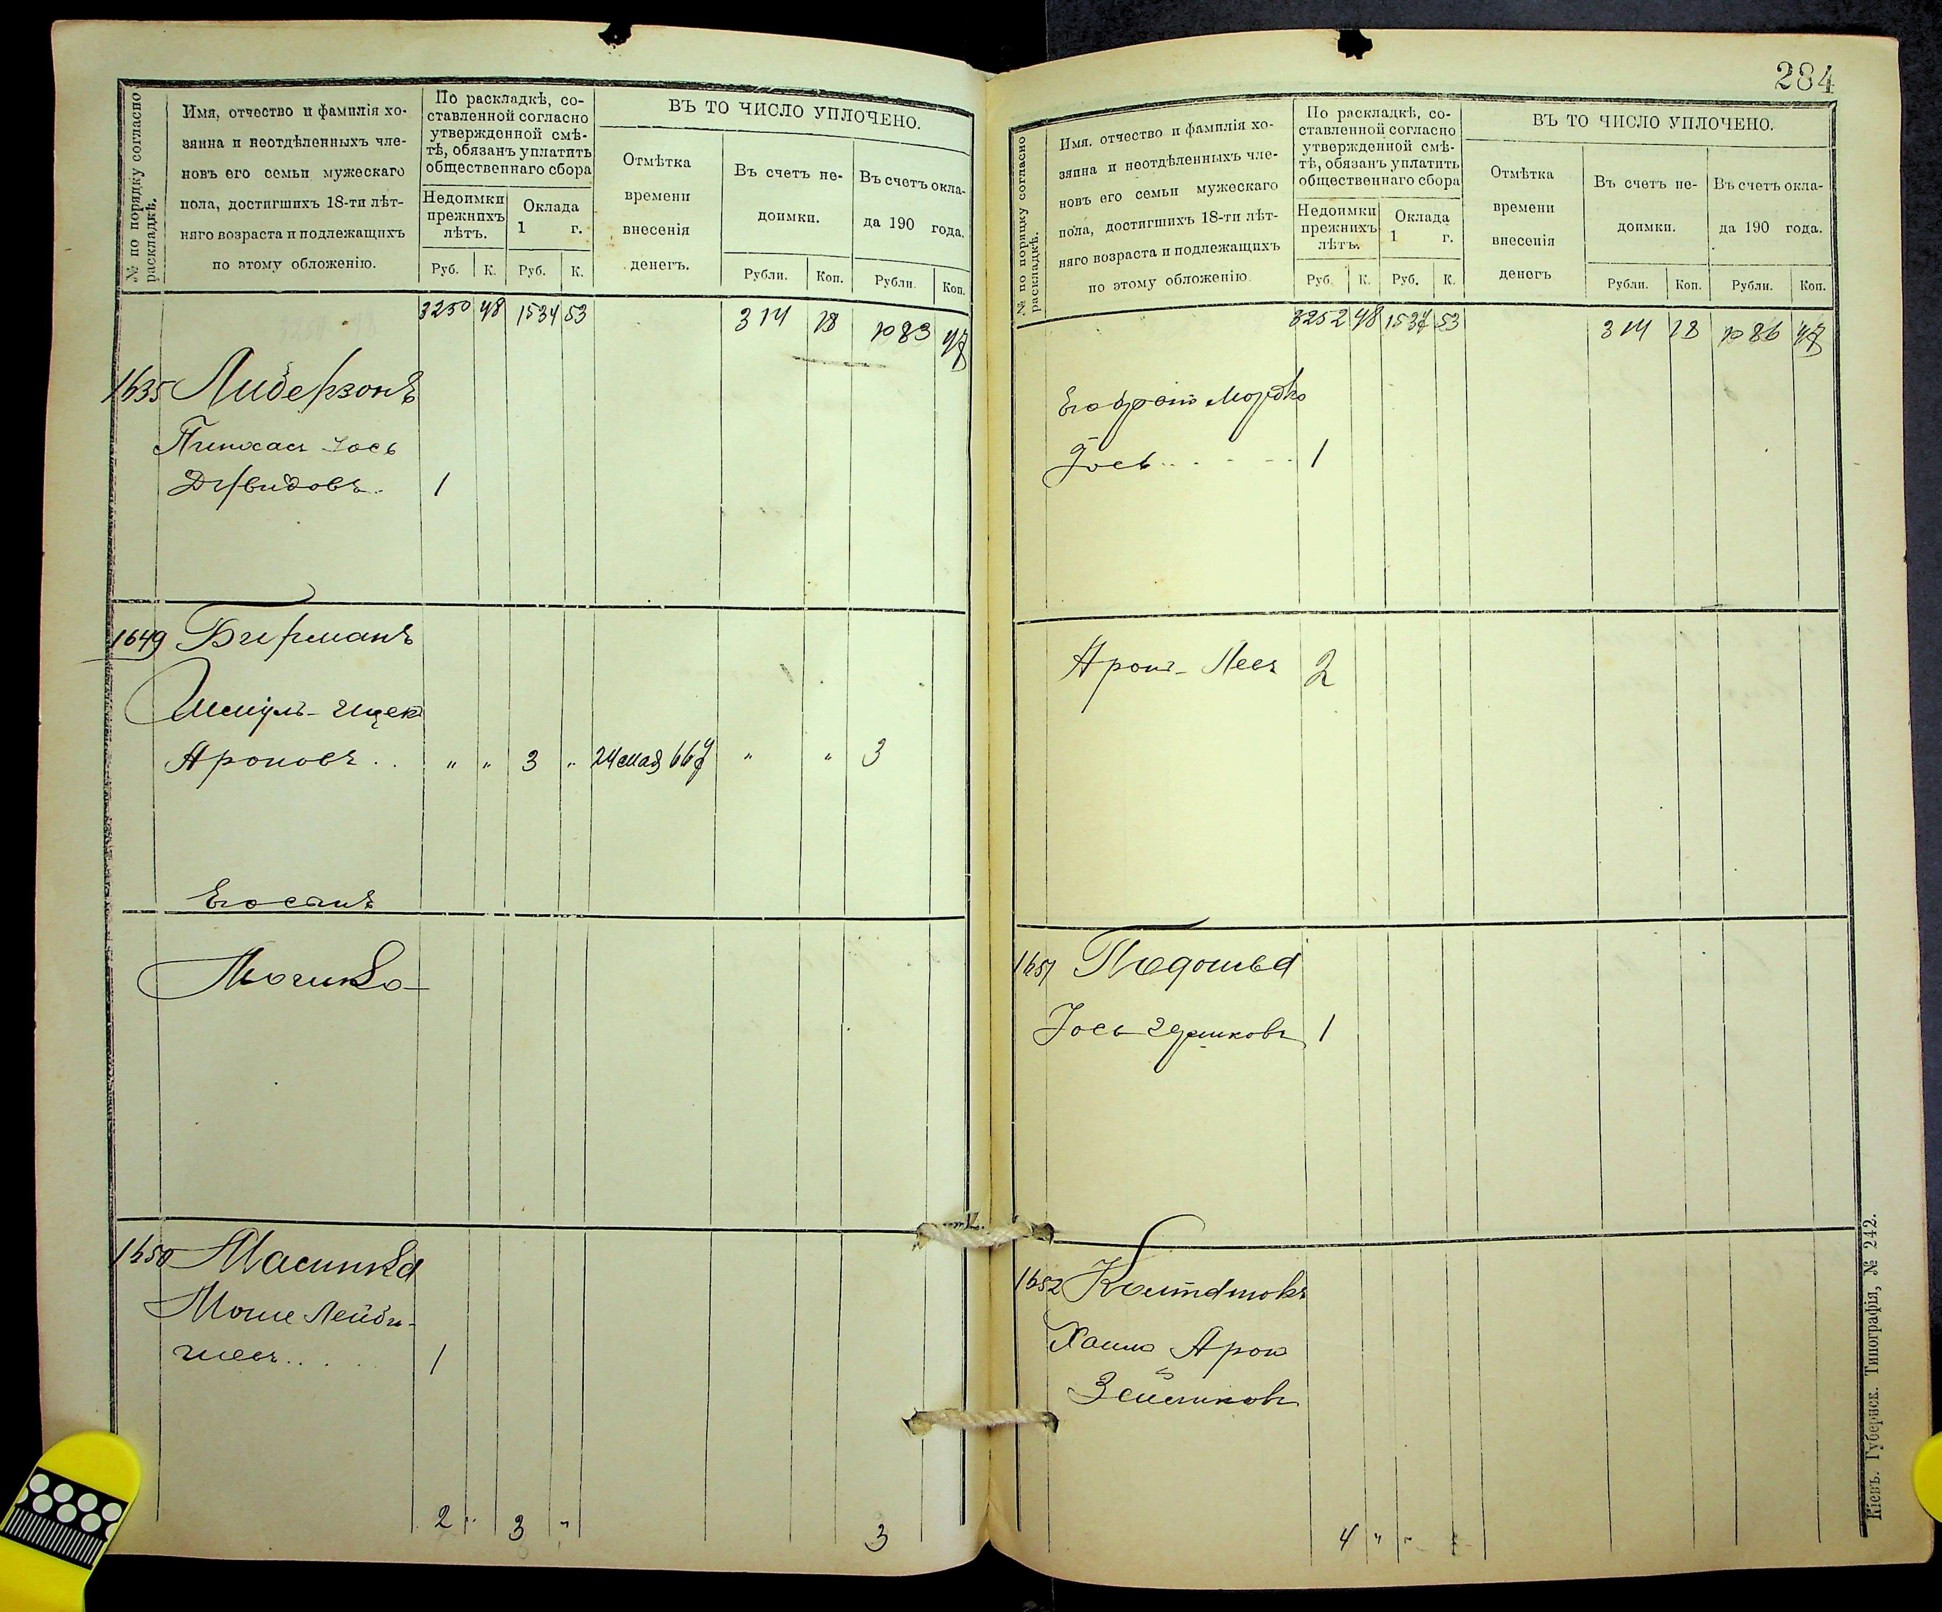 № по порядку согласно раскладкѣ.
Имя, отчество и фамилія хо-
зяина и неотдѣленныхъ чле-
новъ его семьи мужескаго
пола, достигшихъ 18-ти лѣт-
няго возраста и подлежащихъ
по этому обложенію.
По раскладкѣ, со-
ставленной согласно
утвержденной смѣ-
тѣ, обязанъ уплатить
общественнаго сбора
Недоимки
прежнихъ
лѣтъ.
Оклада
1 г.
Руб. К. Руб. К.
ВЪ ТО ЧИСЛО УПЛОЧЕНО.
Отмѣтка
времени
внесенія
денегъ.
Въ счетъ не-
доимки.
Въ счетъ окла-
да 190 года.
Рубли. Коп. Рубли. Коп.
3250 48 1534 53 314 18 1083 47
1635 Либерзонъ
Пинхасъ Іось
Дувидовъ 1
1649 Бирманъ
Шмуль-Ицекъ
Ароновъ . . „ „ 3 „ 24 мая „ „ 3
Его сынъ
Мошко
1650 Масинка
Моше Лейби-
шевъ . . . . 1
2 „ 3 „ 3
284
№ по порядку согласно раскладкѣ.
Имя, отчество и фамилія хо-
зяина и неотдѣленныхъ чле-
новъ его семьи мужескаго
пола, достигшихъ 18-ти лѣт-
няго возраста и подлежащихъ
по этому обложенію.
По раскладкѣ, со-
ставленной согласно
утвержденной смѣ-
тѣ, обязанъ уплатить
общественнаго сбора
Недоимки
прежнихъ
лѣтъ.
Оклада
1 г.
Руб. К. Руб. К.
ВЪ ТО ЧИСЛО УПЛОЧЕНО.
Отмѣтка
времени
внесенія
денегъ
Въ счетъ не-
доимки.
Въ счетъ окла-
да 190 года.
Рубли. Коп. Рубли. Коп.
3252 48 1537 53 314 18 1086 47
Его братъ Мордко
Іось . . . . 1
Аронъ-Лейб 2
1651 Подошва
Іось 1
1652
Хаимъ Аронъ
Зейликовъ
4 „ „
Кіевъ. Губернск. Типографія, № 242.